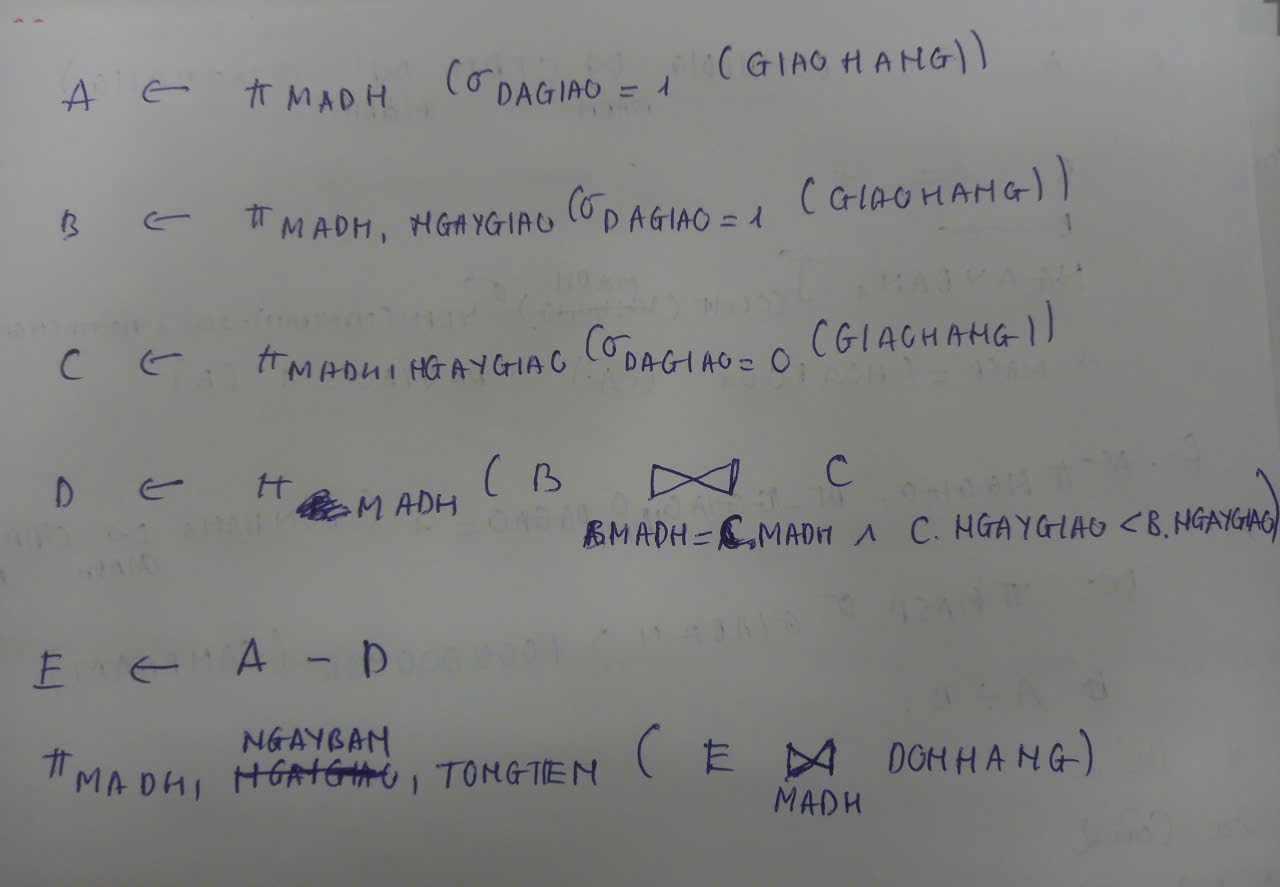 A ← π MADH (σ DAGIAO = 1 (GIAOHANG))
B ← π MADH, NGAYGIAO (σ DAGIAO = 1 (GIAOHANG))
C ← π MADH, NGAYGIAO (σ DAGIAO = 0 (GIAOHANG))
D ← π MADH ( B ⋈ C
B.MADH = C.MADH ∧ C.NGAYGIAO < B.NGAYGIAO)
E ← A - D
NGAYBAN
π MADH, NGAYGIAO, TONGTIEN ( E ⋈ DONHANG)
MADH